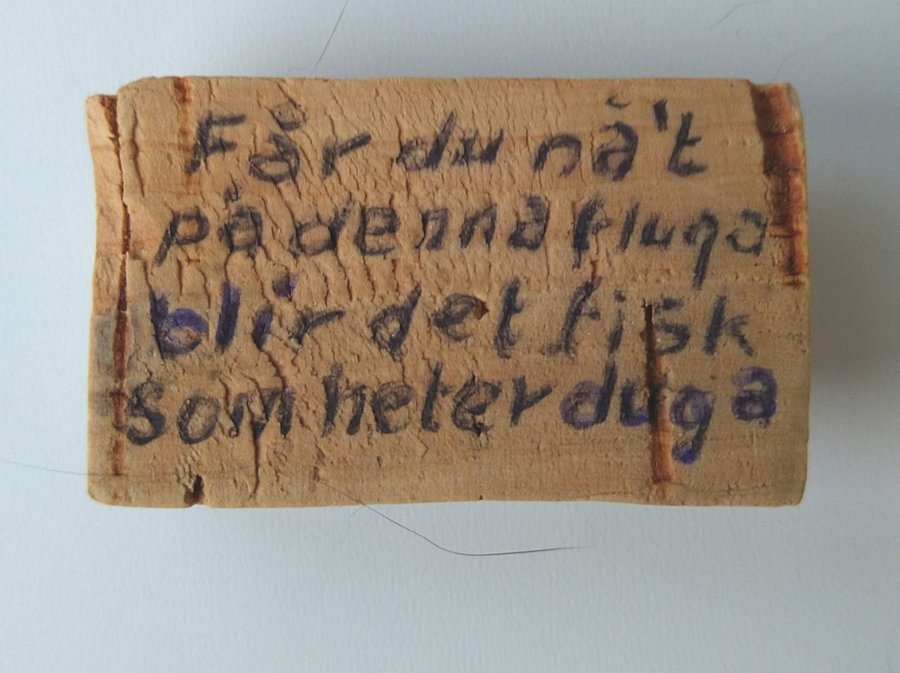 Får du nå't
på denna fluga
blir det fisk
som heter duga